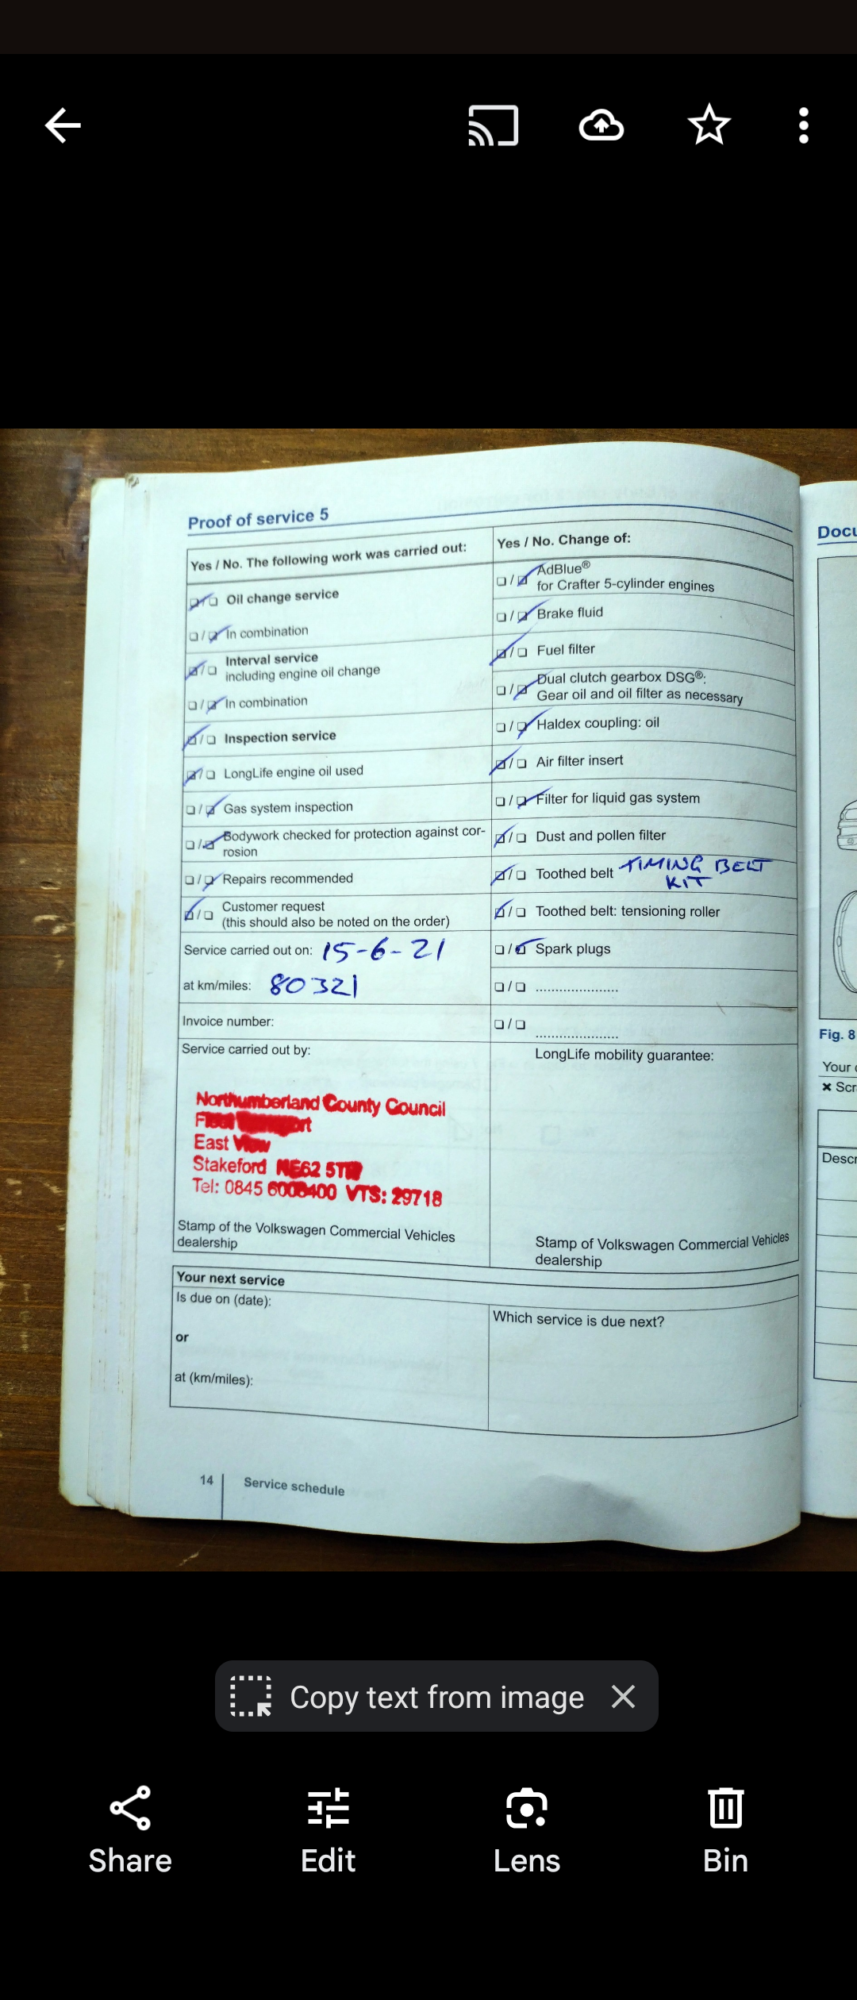 Proof of service 5
Yes / No. The following work was carried out:
Oil change service
In combination
Interval service
including engine oil change
In combination
Inspection service
LongLife engine oil used
Gas system inspection
Bodywork checked for protection against cor-
rosion
Repairs recommended
Customer request
(this should also be noted on the order)
Service carried out on: 15-6-21
at km/miles: 80321
Invoice number:
Service carried out by:
Northumberland County Council
East View
Stakeford NE62 5
Tel: 0845 6006400 VTS: 29718
Stamp of the Volkswagen Commercial Vehicles
dealership
Yes / No. Change of:
AdBlue®
for Crafter 5-cylinder engines
Brake fluid
Fuel filter
Dual clutch gearbox DSG®:
Gear oil and oil filter as necessary
Haldex coupling: oil
Air filter insert
Filter for liquid gas system
Dust and pollen filter
Toothed belt TIMING BELT
KIT
Toothed belt: tensioning roller
Spark plugs
LongLife mobility guarantee:
Stamp of Volkswagen Commercial Vehicles
dealership
Your next service
Is due on (date):
or
at (km/miles):
Which service is due next?
14 Service schedule
Docu
Fig. 8
Your
× Scr
Descr
Copy text from image
Share Edit Lens Bin